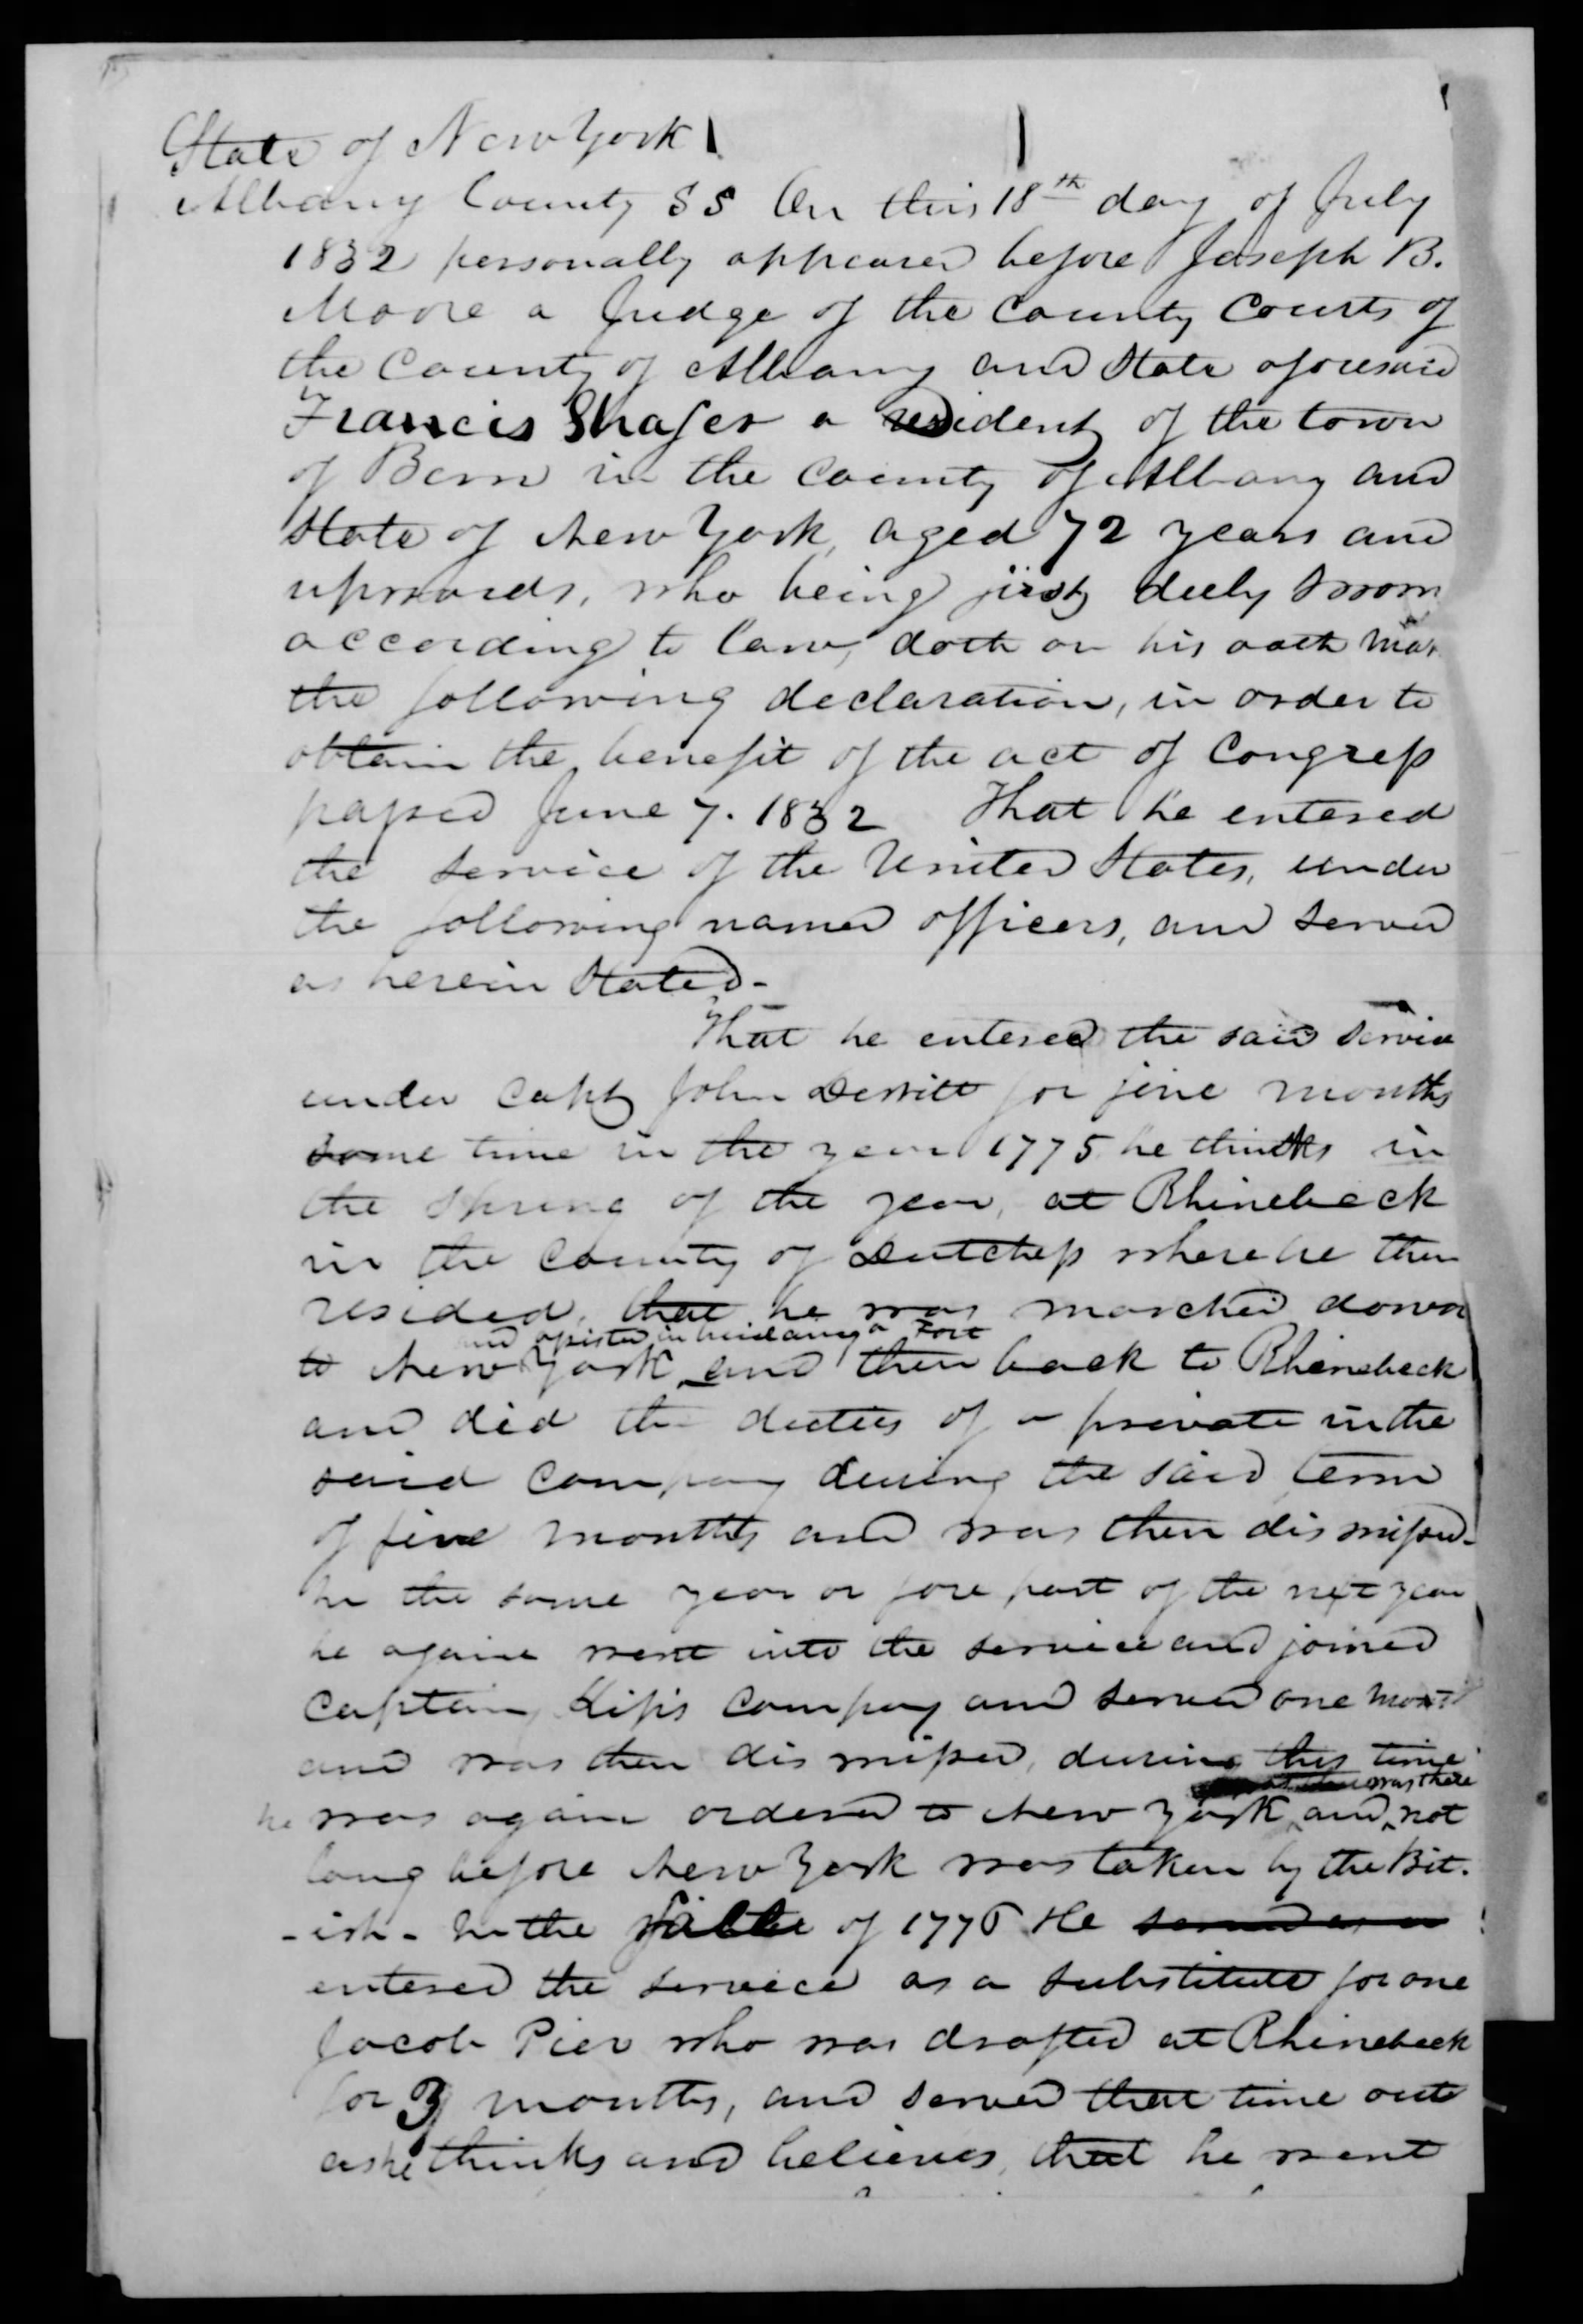 State of New York
Albany County SS On this 18th day of July
1832 personally appeared before Joseph B.
Moore a Judge of the County Courts of
the County of Albany and State aforesaid
Francis Shafer a resident of the town
of Bern in the County of Albany and
State of New York, aged 72 years and
upwards, who being first duly sworn
according to law, doth on his oath mak
the following declaration, in order to
obtain the benefit of the act of Congress
passed June 7. 1832 That he entered
the service of the United States, under
the following named officers, and served
as herein stated -
That he entered the said service
under Capt John Dewitt for five months
some time in the year 1775 he thinks in
the spring of the year, at Rhinebeck
in the County of Dutchess where he then
resided, that he was marched down
and assisted in building a Fort
to New York and then back to Rhinebeck
and did the duties of a private in the
said company during the said term
of five months and was then dismissed -
In the same year or fore part of the next year
he again went into the service and joined
Captain Kip's company and served one month
and was then dismissed, during this time
was there
he was again ordered to New York and not
long before New York was taken by the Brit-
-ish - In the fall of 1776 He served as a
entered the service as a substitute for one
Jacob Pier who was drafted at Rhinebeck
for 3 months, and served that time out
as he thinks and believes, that he went